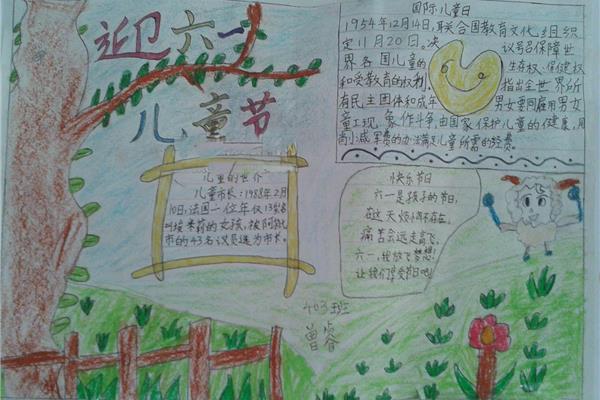 迎六一
儿童节
国际儿童日
1954年12月14日,联合国教育文化组织
定11月20日。决议号召保障世
界各国儿童的生存权、保健权
和受教育的权利,指出全世界所
有民主团体和成年男女要同雇用男女
童工现象作斗争,由国家保护儿童的健康,用
尚小减军费的办法满足儿童所需的经费。
"儿童的世界"
儿童市长:1988年2月
10日,法国一位年仅13岁名
叫埃米莉的女孩,被
市的43名议员选为市长。
快乐节日
六一是孩子的节日,
在这天烦恼不存在。
痛苦会远走高飞。
六一,我放飞梦想!
让我们享受节日吧!
403班
曾睿